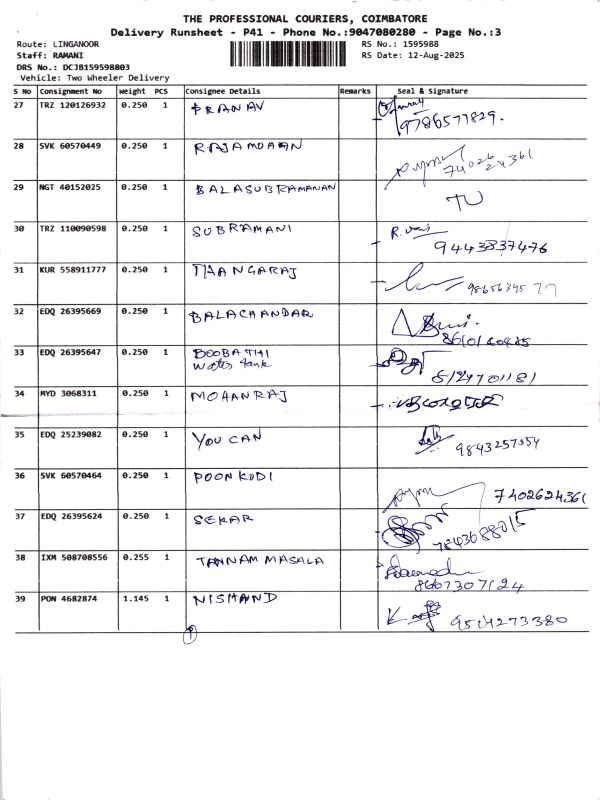 THE PROFESSIONAL COURIERS, COIMBATORE
Delivery Runsheet - P41 - Phone No.:9047080280 - Page No.:3
Route: LINGANOOR RS No.: 1595988
Staff: RAMANI RS Date: 12-Aug-2025
DRS No.: DCJB159598803
Vehicle: Two Wheeler Delivery
S No Consignment No Weight PCS Consignee Details Remarks Seal & Signature
27 TRZ 120126932 0.250 1 PRANAV
9786577829.
28 SVK 60570449 0.250 1 RAJAMOHAN
74026 24361
29 NGT 40152025 0.250 1 BALASUBRAMANAN
30 TRZ 110090598 0.250 1 SUBRAMANI
9443837476
31 KUR 558911777 0.250 1 THANGARAJ
32 EDQ 26395669 0.250 1 BALACHANDAR
33 EDQ 26395647 0.250 1 BOOBATHI
water tank
8124701181
34 MYD 3068311 0.250 1 MOHANRAJ
35 EDQ 25239082 0.250 1 YOU CAN
9843257554
36 SVK 60570464 0.250 1 POONKODI
7402624361
37 EDQ 26395624 0.250 1 SEKAR
7843688015
38 IXM 508708556 0.255 1 TANNAM MASALA
8667307124
39 PON 4682874 1.145 1 NISHAND
9514273380